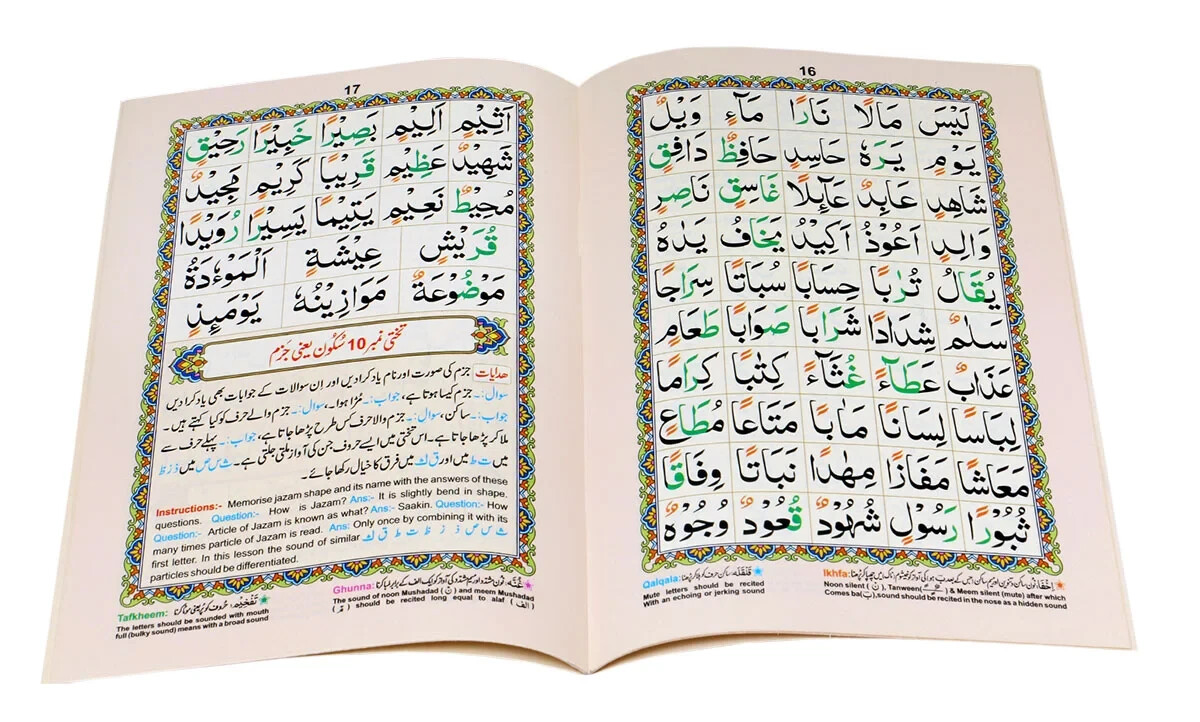 16
لَيْسَ مَالًا نَارًا مَآءٍ وَيْلٌ
يَوْمٍ يَرَهٗ حَاسِدٍ حَافِظٌ دَافِقٍ
شَاهِدٍ عَابِدٌ عَآئِلًا غَاسِقٍ نَاصِرٍ
وَالِدٍ اَعُوْذُ اَكِيْدُ يَخَافُ يَدٰهُ
يُقَالُ تُرٰبًا حِسَابًا سُبَاتًا سِرَاجًا
سَلٰمٌ شِدَادًا شَرَابًا صَوَابًا طَعَامِ
عَذَابٌ عَطَآءً غُثَآءً كِتٰبًا كِرَامًا
لِبَاسًا لِسَانًا مَاٰبًا مَتَاعًا مُطَاعٍ
مَعَاشًا مَفَازًا مِهٰدًا نَبَاتًا وِفَاقًا
ثُبُوْرًا رَسُوْلٍ شُهُوْدٌ قُعُوْدٌ وُجُوْهٌ
Ikhfa:
Noon silent (ن), Tanween & Meem silent (mute) after which
Comes ba(ب),sound should be recited in the nose as a hidden sound
Qalqala: قَلْقَلَہ:
Mute letters should be recited
With an echoing or jerking sound
17
اَثِيْمٍ اَلِيْمٍ بَصِيْرًا خَبِيْرًا رَحِيْقٍ
شَهِيْدٌ عَظِيْمٍ قَرِيْبًا كَرِيْمٍ مَجِيْدٌ
مُحِيْطٌ نَعِيْمٍ يَتِيْمًا يَسِيْرًا رُوَيْدًا
قُرَيْشٍ عِيْشَةٍ اَلْمَوْءٗدَةُ
مَوْضُوْعَةٌ مَوَازِيْنُهٗ يَوْمَئِذٍ
تختی نمبر 10 سُکُون یعنی جَزم
ھدایات جزم کی صورت اور نام یاد کرادیں اور اِن سوالات کے جوابات بھی یاد کرادیں
سوال:۔ جزم کیسا ہوتا ہے، جواب:۔ مُڑا ہوا۔، سوال:۔ جزم والے حرف کو کیا کہتے ہیں۔
جواب:۔ ساکن، سوال:۔ جزم والا حرف کس طرح پڑھا جاتا ہے، جواب:۔ پہلے حرف سے
ملا کر پڑھا جاتا ہے۔ اس تختی میں ایسے حروف جن کی آواز ملتی جلتی ہے۔ ث س ص میں ذ ز ظ
میں ت ط میں اور ق ک میں فرق کا خیال رکھا جائے۔
Instructions:- Memorise jazam shape and its name with the answers of these
questions. Question:- How is Jazam? Ans:- It is slightly bend in shape.
Question:- Article of Jazam is known as what? Ans:- Saakin. Question:- How
many times particle of Jazam is read. Ans: Only once by combining it with its
first letter. In this lesson the sound of similar ث س ص ذ ز ظ ت ط ق ک
particles should be differentiated.
Ghunna: غُنَّہ:
The sound of noon Mushadad (نّ) and meem Mushadad
(مّ) should be recited long equal to alaf (الف)
Tafkheem: تَفْخِيْم:
The letters should be sounded with mouth
full (bulky sound) means with a broad sound